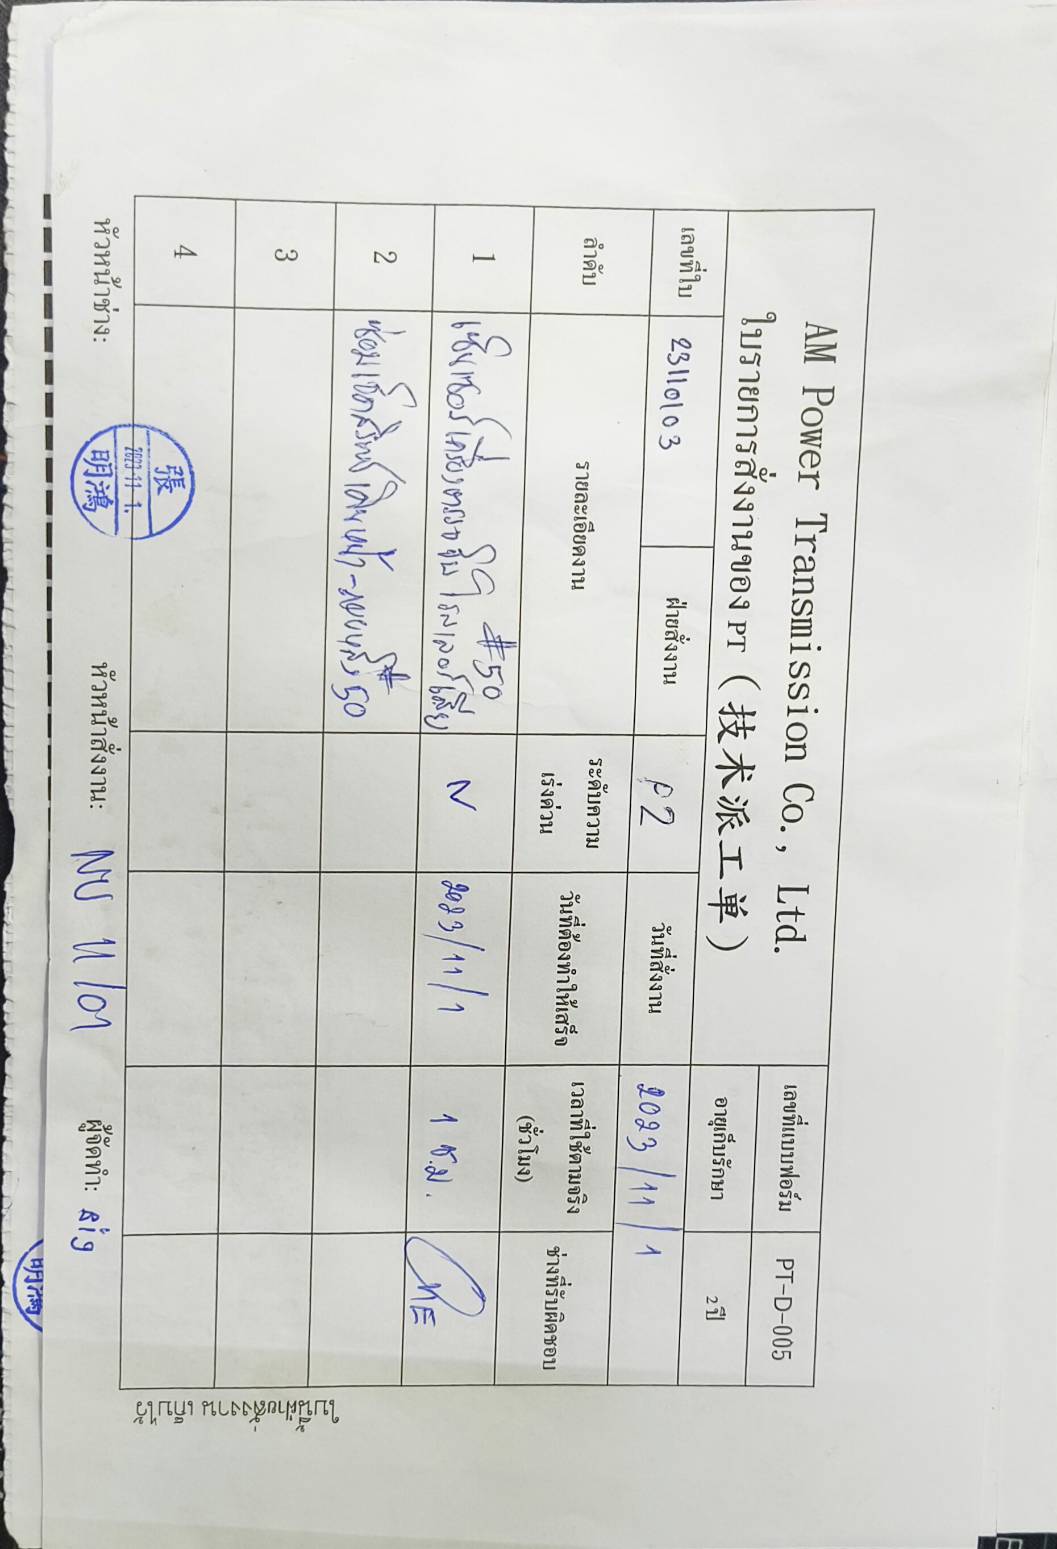 AM Power Transmission Co., Ltd.
ใบรายการสั่งงานของ PT (技术派工单)
เลขที่แบบฟอร์ม PT-D-005
อายุเก็บรักษา 2 ปี
เลขที่ใบ 23110103 ฝ่ายสั่งงาน P2 วันที่สั่งงาน 2023/11/1
ลำดับ รายละเอียดงาน ระดับความเร่งด่วน วันที่ต้องทำให้เสร็จ เวลาที่ใช้ตามจริง (ชั่วโมง) ช่างที่รับผิดชอบ
#50
1 เซ็นเซอร์เครื่องตรวจจับโรลเลอร์เสีย N 2023/11/1 1 ช.ม.
2 ซ่อมเช็คสวิทช์เดินหน้า-ถอยหลัง #50
3
4
張
2023.11. 1.
明鴻
หัวหน้าช่าง: หัวหน้าสั่งงาน: NU 11/01 ผู้จัดทำ: Big
ใบนี้ฝ่ายสั่งงาน เก็บไว้
明鴻